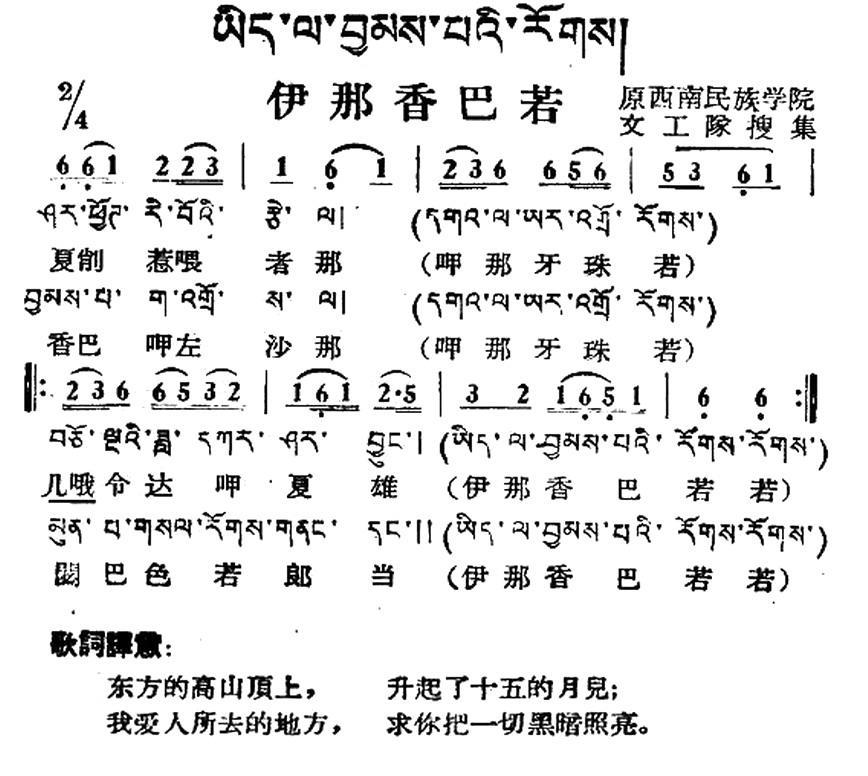 ཡིད་ལ་བྱམས་པའི་རོགས།
伊那香巴若
2/4
原西南民族学院
文工隊搜集
6 6 1 2 2 3 | 1 6 1 | 2 3 6 6 5 6 | 5 3 6 1 |
ཤར་ཕྱོད་རི་བོའི་ རྩེ་ ལ། (དགའ་ལ་ཡར་འགྲོ་ རོགས་)
夏削 惹喂 者 那 (呷 那 牙 珠 若)
བྱམས་པ་ ག་འགྲོ་ ས་ ལ། (དགའ་ལ་ཡར་འགྲོ་ རོགས་)
香巴 呷左 沙 那 (呷 那 牙 珠 若)
‖: 2 3 6 6 5 3 2 | 1 6 1 2·5 | 3 2 1 6 5 1 | 6 6 :‖
བཅོ་ལྔའི་ཟླ་ དཀར་ ཤར་ བྱུང་། (ཡིད་ལ་བྱམས་པའི་ རོགས་རོགས་)
几哦 令 达 呷 夏 雄 (伊 那 香 巴 若 若)
མུན་པ་གསལ་རོགས་གནང་ དང་།། (ཡིད་ལ་བྱམས་པའི་ རོགས་རོགས་)
巴 色 若 郎 当 (伊 那 香 巴 若 若)
歌詞譯意:
东方的高山頂上， 升起了十五的月兒；
我爱人所去的地方， 求你把一切黑暗照亮。